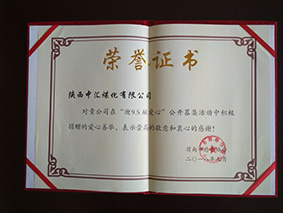 荣誉证书
陕西中汇煤化有限公司
对贵公司在“9.5献爱心”公开募集活动中积极
捐赠的爱心善举，表示崇高的敬意和衷心的感谢！
渭南
二〇一八年九月